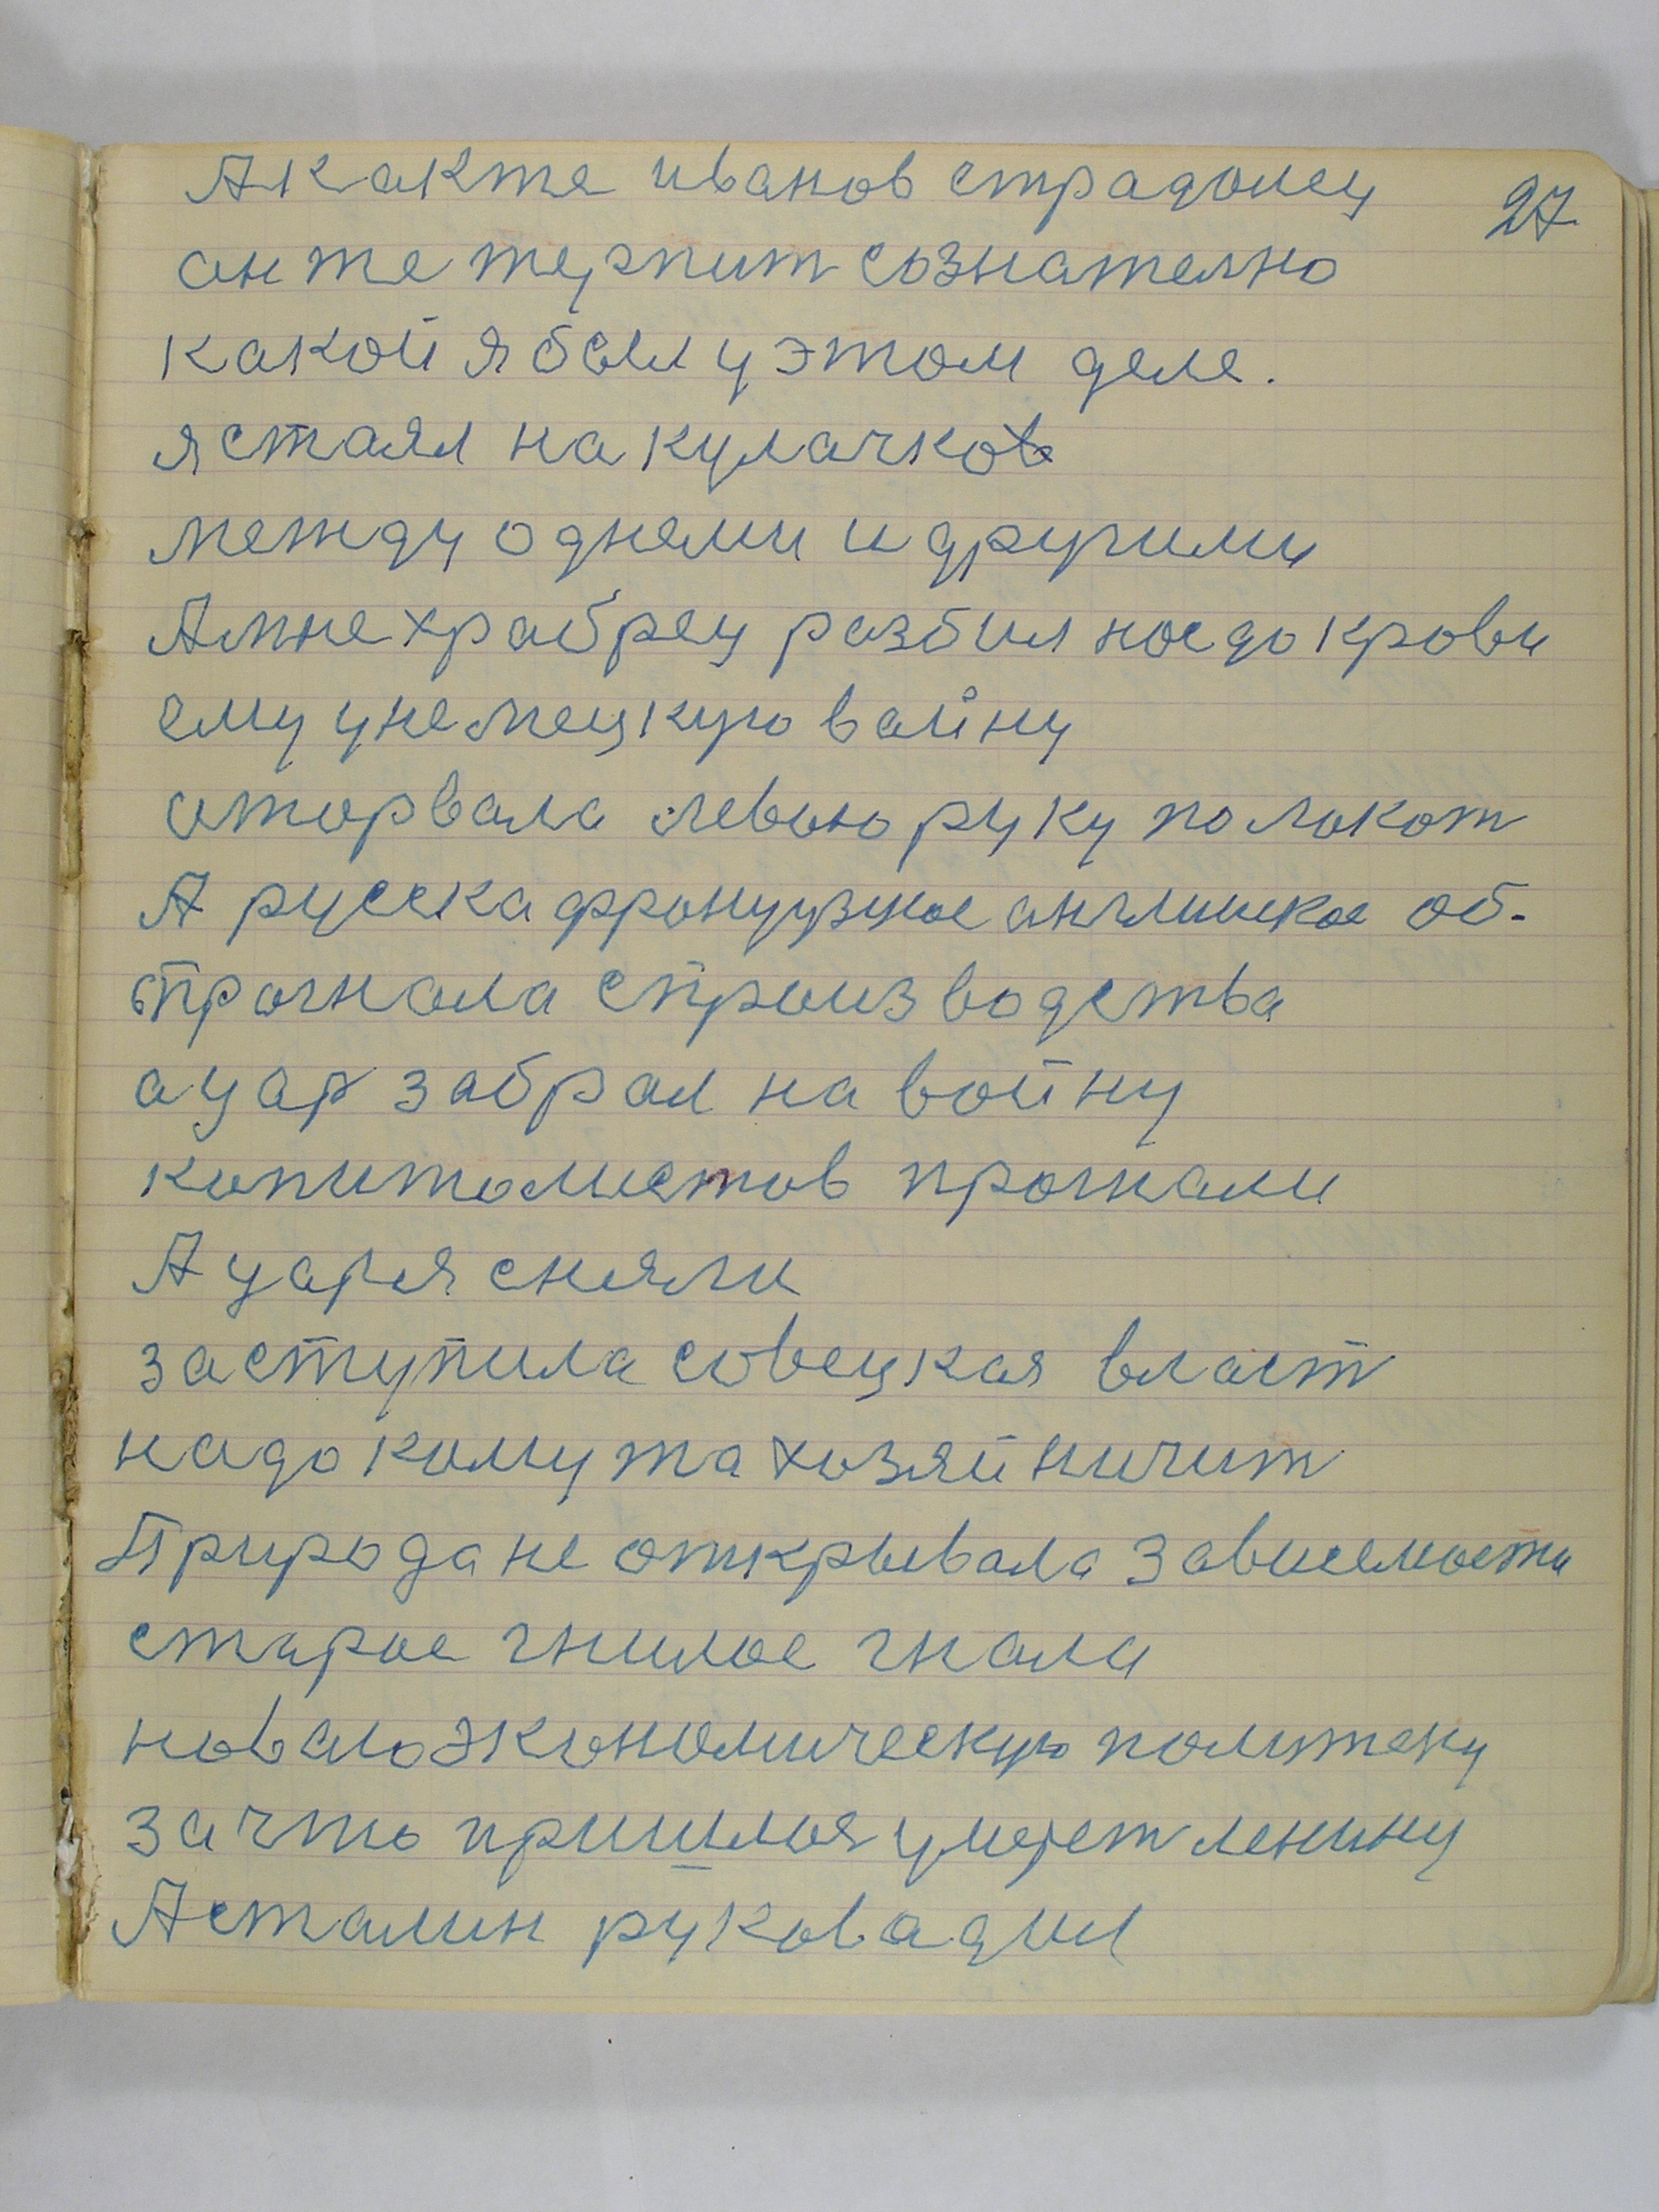 27
А какже иванов страдолец
он же терпит сознателно
какой я был у этом деле.
я стаял на кулачков
между однеми и другими
А мне храбрец разбил нос до крови
ему у немецкую вайну
оторвала левыю руку по локот
А русска французкое англииское об-
прогнала с производства
а цар забрал на войну
копитолистов прогнали
А царя сняли
заступила совецкая власт
надо кому та хозяйничит
Природа не открывала зависемости
старое гнилое гнала
новаю экономическую политеку
за что пришлося умерет ленину
А сталин руковадил